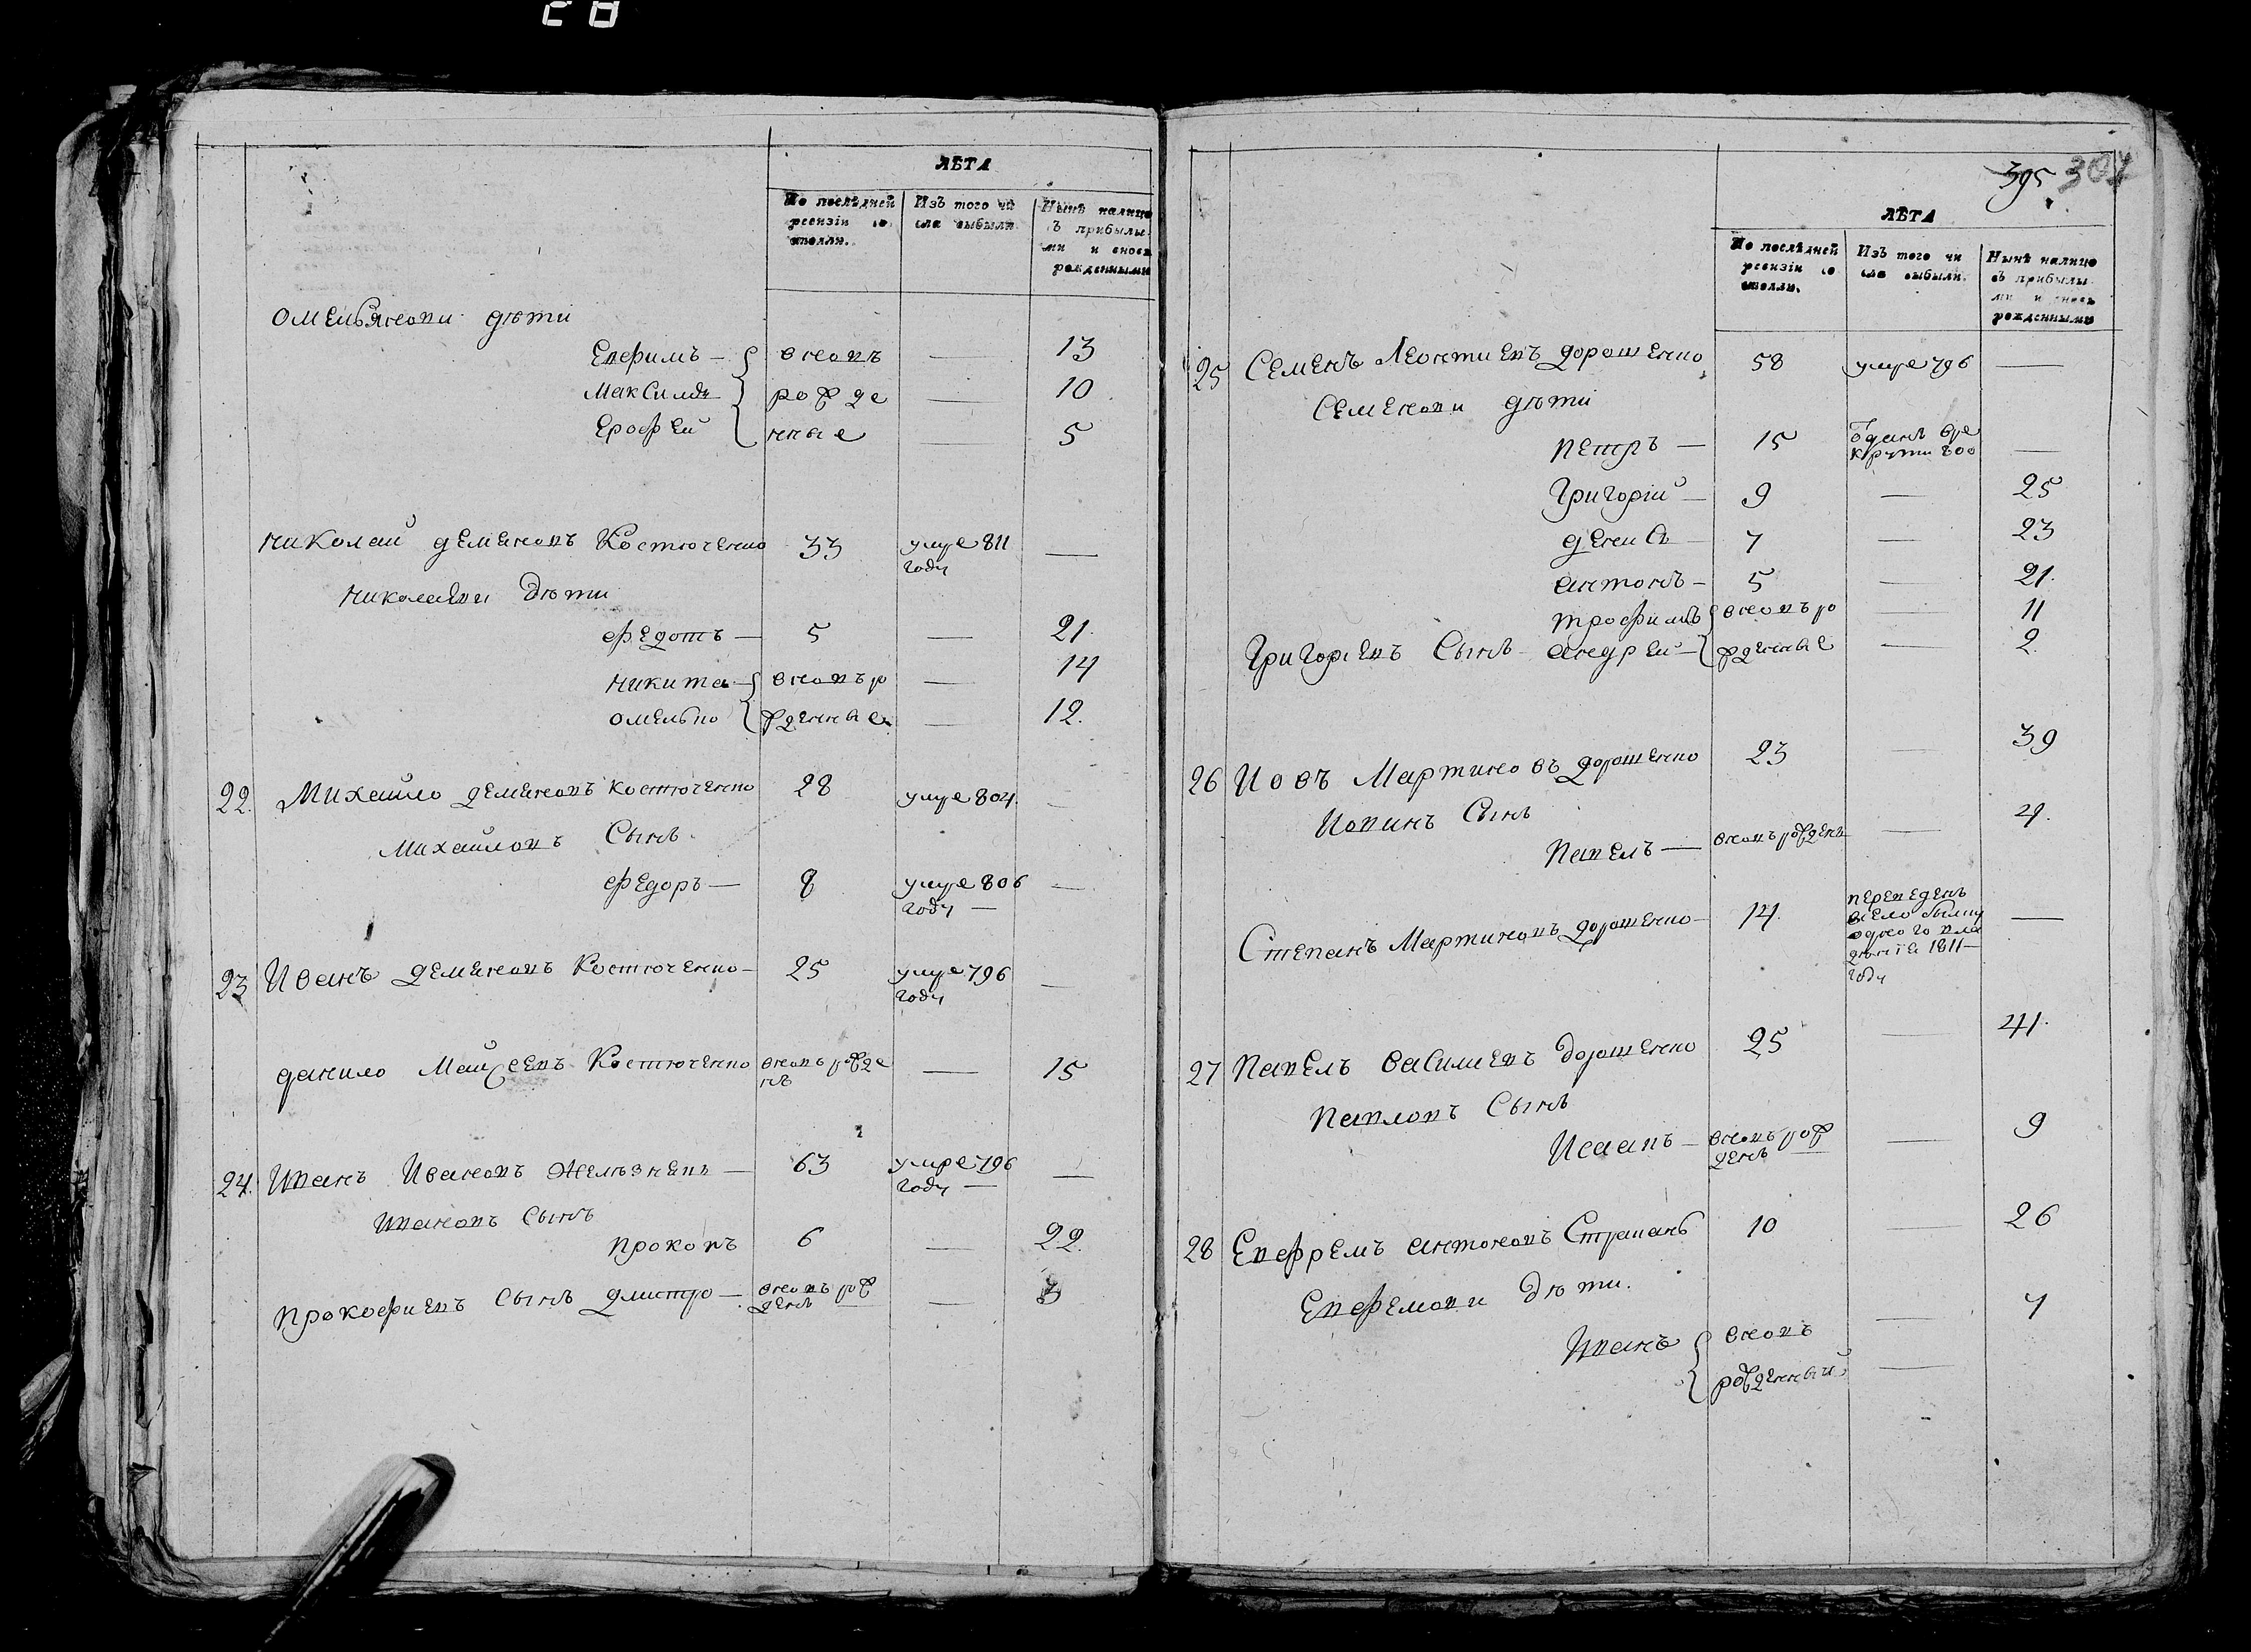 28
ЛѢТА
По послѣдней ревизіи состояли.
Изъ того числа выбыли
Нынѣ на лицо съ прибылыми и вновь рожденными
Омельянови дѣти
Евфимъ — вновь — 13
Максимъ рожде — 10
Ерофей нные — 5
Николай Деменовъ Костюченко 33 умре 811 —
году
Николаеви дѣти
Федотъ — 5 — 21.
Никита — вновь ро — 14
Омелько жденные — 12.
22. Михайло Деменовъ Костюченко 28 умре 804. —
Михайловъ Сынъ
Федоръ — 8 умре 806 —
году —
23 Иванъ Деменовъ Костюченко — 25 умре 796 —
году
Данило Майсеевъ Костюченко вновь рожде — 15
нъ
24. Иванъ Ивановъ Желѣзневъ — 63 умре 796 —
году —
Ивановъ Сынъ
Прокопъ 6 — 22.
Прокофиевъ Сынъ Дмитро — вновь рож — 3
денъ
395 307
ЛѢТА
По послѣдней ревизіи состояли.
Изъ того числа выбыли.
Нынѣ на лицо съ прибылыми и вновь рожденными
25 Семенъ Леонтиевъ Дорошенко 58 умре 796 —
Семенови дѣти
Петръ — 15 отданъ вре —
крути 800
Григорій — 9 — 25
Денисъ — 7 — 23
Антонъ — 5 — 21.
Трофимъ вновь ро — 11
Григориевъ Сынъ — Андрей — жденные — 2.
26 Иовъ Мартиновъ Дорошенко 23 — 39
Иовинъ Сынъ
Павелъ — вновь рожденъ — 4.
Степанъ Мартиновъ Дорошенко — 14. переведенъ —
одного вла
дѣнія 1811 —
году
27 Павелъ Василиевъ Дорошенко 25 — 41.
Павловъ Сынъ
Исаакъ — вновь рож — 9
денъ
28 Евфремъ Антоновъ Страпань 10 — 26
Евфремови дѣти.
Иванъ вновь — 7
рожденный —